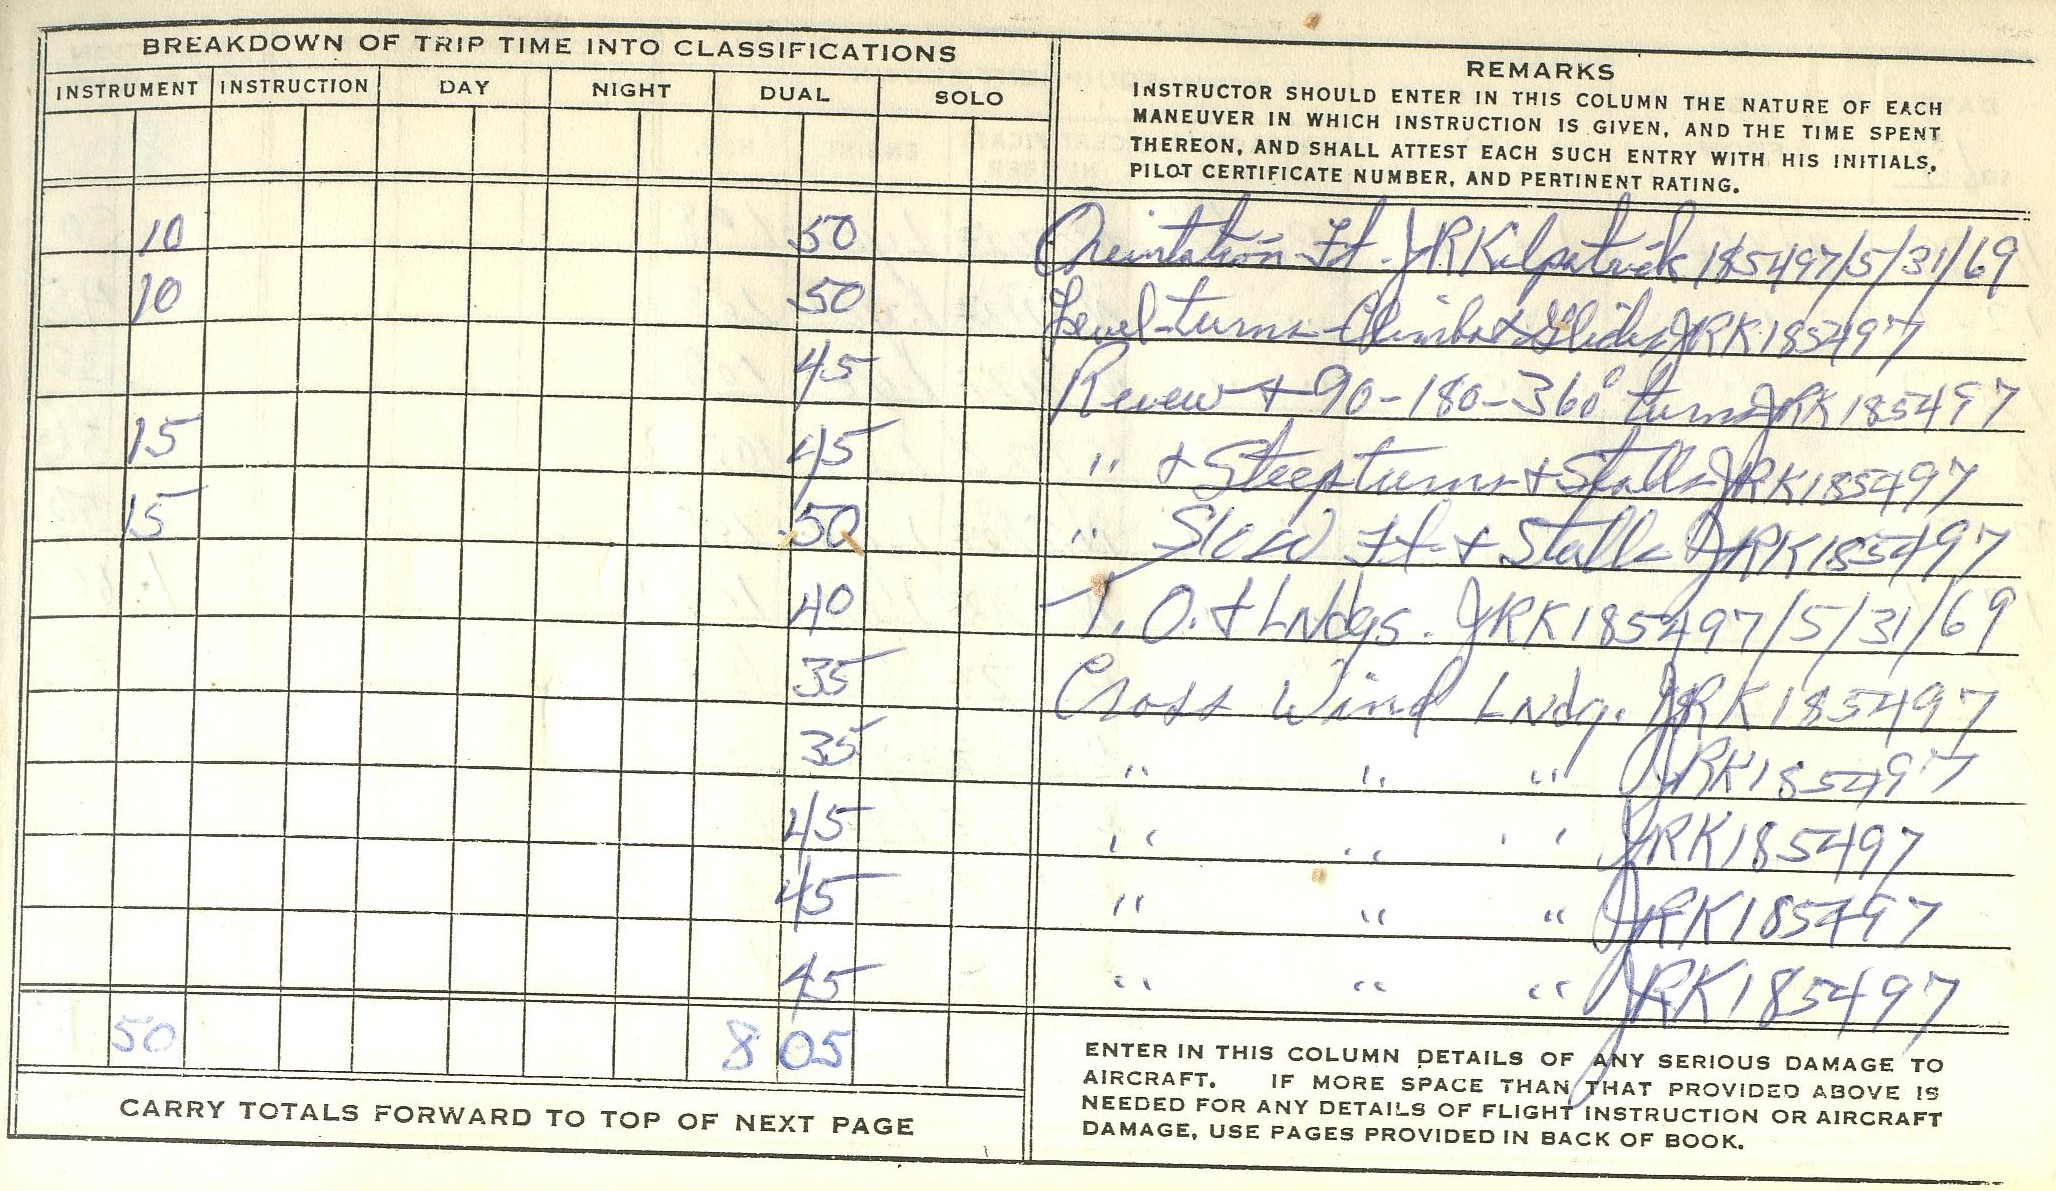 BREAKDOWN OF TRIP TIME INTO CLASSIFICATIONS
INSTRUMENT INSTRUCTION DAY NIGHT DUAL SOLO
REMARKS
INSTRUCTOR SHOULD ENTER IN THIS COLUMN THE NATURE OF EACH
MANEUVER IN WHICH INSTRUCTION IS GIVEN, AND THE TIME SPENT
THEREON, AND SHALL ATTEST EACH SUCH ENTRY WITH HIS INITIALS,
PILOT CERTIFICATE NUMBER, AND PERTINENT RATING.
10 50 Orientation Ft. JRKilpatrick 185497/5/31/69
10 50 Level-turns-Climbs & Glides JRK185497
45 Review + 90-180-360° turns JRK185497
15 45 " + Steep turns + Stalls JRK185497
15 50 " Slow Ft. + Stalls JRK185497
40 T.O. + LNdgs. JRK185497/5/31/69
35 Cross Wind LNdg. JRK185497
35 " " " JRK185497
45 " " " JRK185497
45 " " " JRK185497
45 " " " JRK185497
50 8 05
CARRY TOTALS FORWARD TO TOP OF NEXT PAGE
ENTER IN THIS COLUMN DETAILS OF ANY SERIOUS DAMAGE TO
AIRCRAFT. IF MORE SPACE THAN THAT PROVIDED ABOVE IS
NEEDED FOR ANY DETAILS OF FLIGHT INSTRUCTION OR AIRCRAFT
DAMAGE, USE PAGES PROVIDED IN BACK OF BOOK.